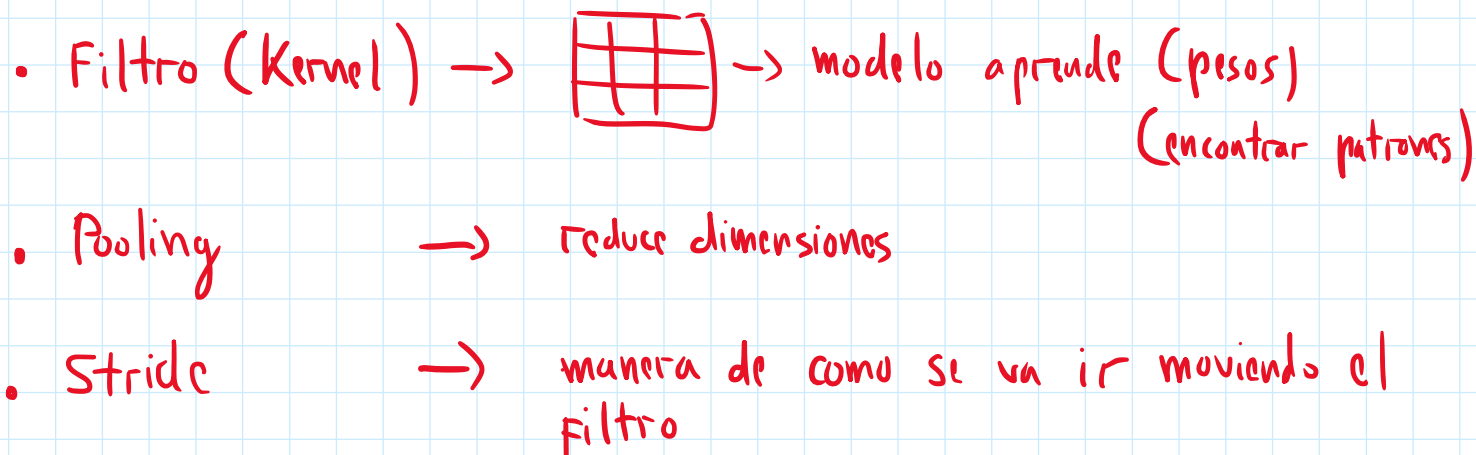 . Filtro (Kernel) → → modelo aprende (pesos)
(encontrar patrones)
. Pooling → reduce dimensiones
. Stride → manera de como se va ir moviendo el
Filtro